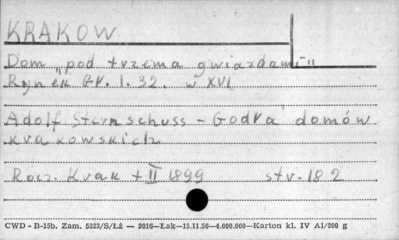 KRAKOW.
Dom „pod trzema gwiazdami"
Rynek Gł. l. 32. w XVI
Adolf Sternschuss - Godła domów
krakowskich
Rocz. Krak t II 1899 str. 182
CWD - B-15b. Zam. 5023/S/Lż — 3016—Łak—15.11.56—4.000.000—Karton kl. IV A1/200 g